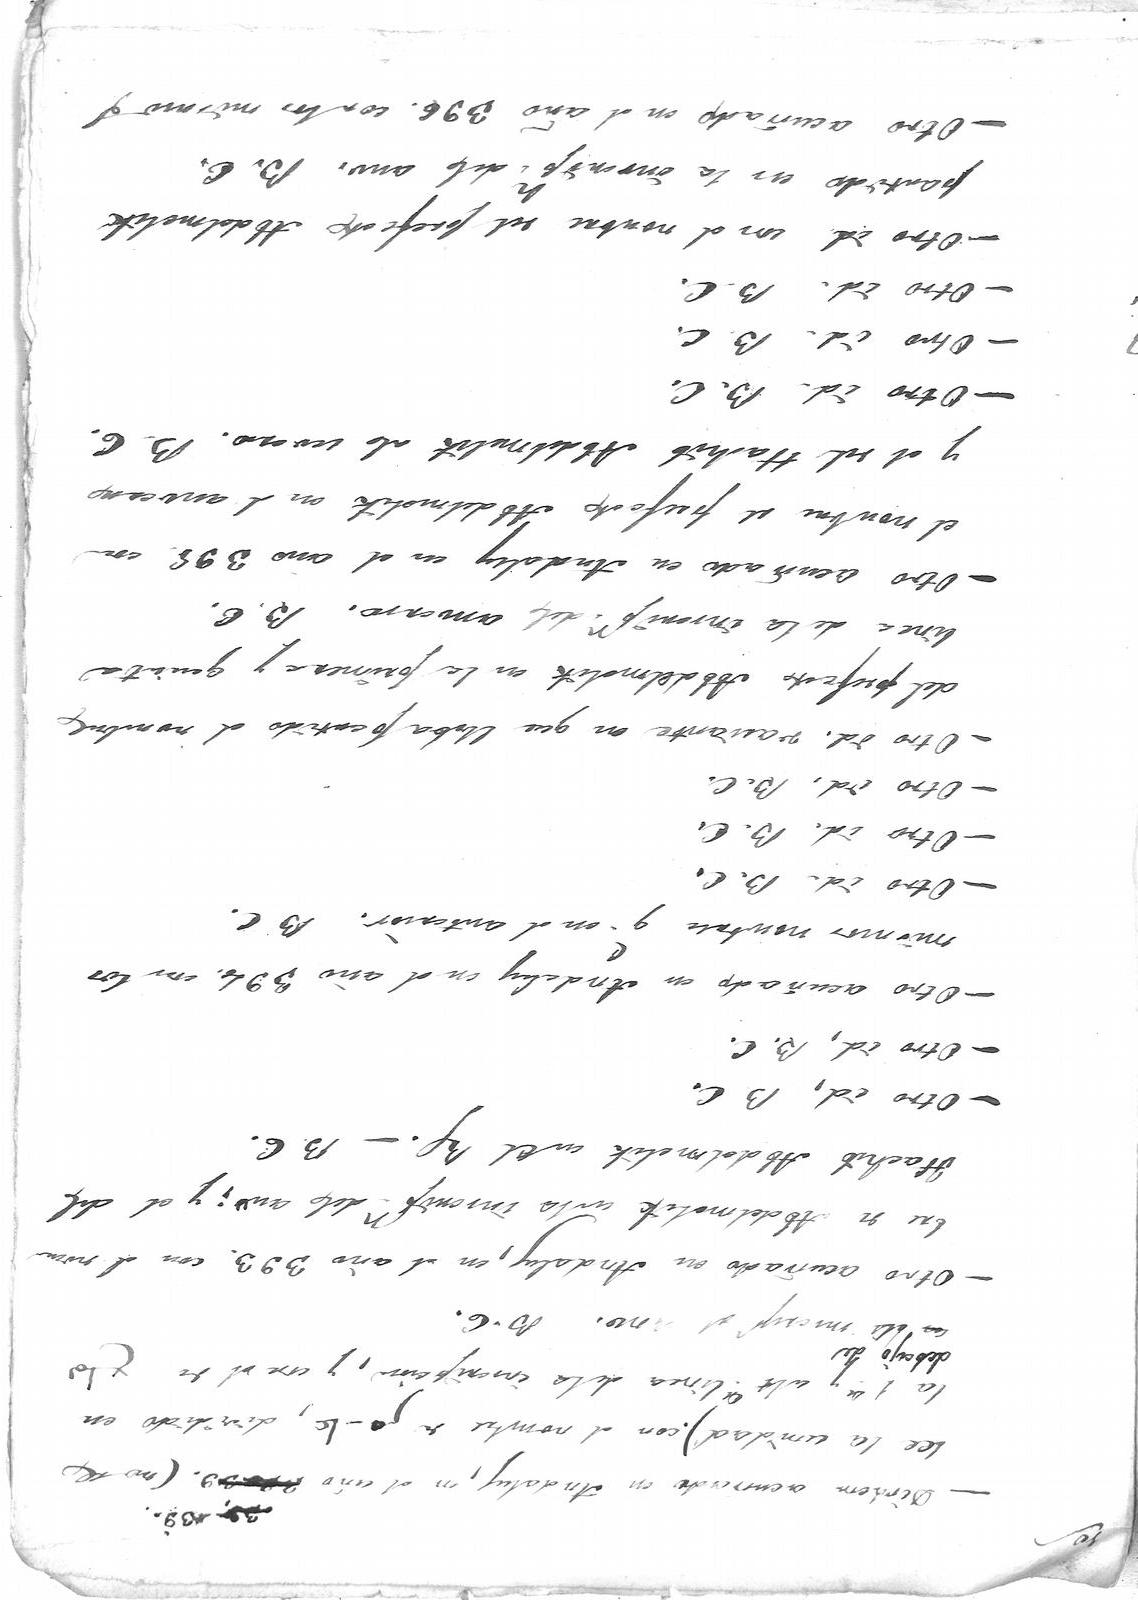 39. 39.
— Dirhem acuñado en Andaluz, en el año 39. (no se
lee la unidad) con el nombre de dividido en
la 1ª y ult.ª linea de la inscripcion, y con el de
debajo de
la inscrip.n del anv. B. C.
— Otro acuñado en Andaluz, en el año 393. con el nom
bre de Abdelmelik en la inscrip.n del anv; y el del
Hachib Abdelmelik en el Rp. — B. C.
— Otro id, B C.
— Otro id, B. C.
— Otro acuñado en Andaluz en el año 396. con los
mismos nombres q. en el anterior. B C.
— Otro id. B. C.
— Otro id. B. C.
— Otro id. B. C.
— Otro id. variante en que lleva partido el nombre
del prefecto Abdelmelik en la primera y quinta
linea de la inscrip.n del anverso. B. C.
— Otro acuñado en Andaluz en el año 395 con
el nombre del prefecto Abdelmelik en el anverso
y el del Hachib Abdelmelik al reverso. B. C.
— Otro id. B. C.
— Otro id. B. C.
— Otro id. B. C.
— Otro id. con el nombre del prefecto Abdelmelik
partido en la inscrip.n del anv. B. C.
— Otro acuñado en el año 396. con los mismos